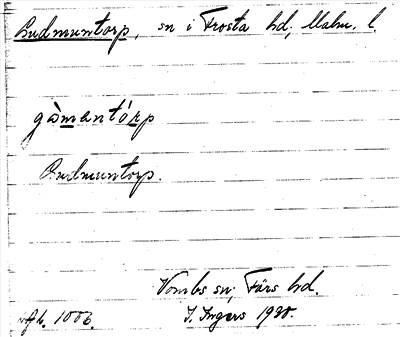 Gudmuntorp, sn i Frosta hd, Malm. l.
gàmantórp
Gudmuntorp.
Vombs sn, Färs hd.
afh. 1006. I. Ingers 1928.